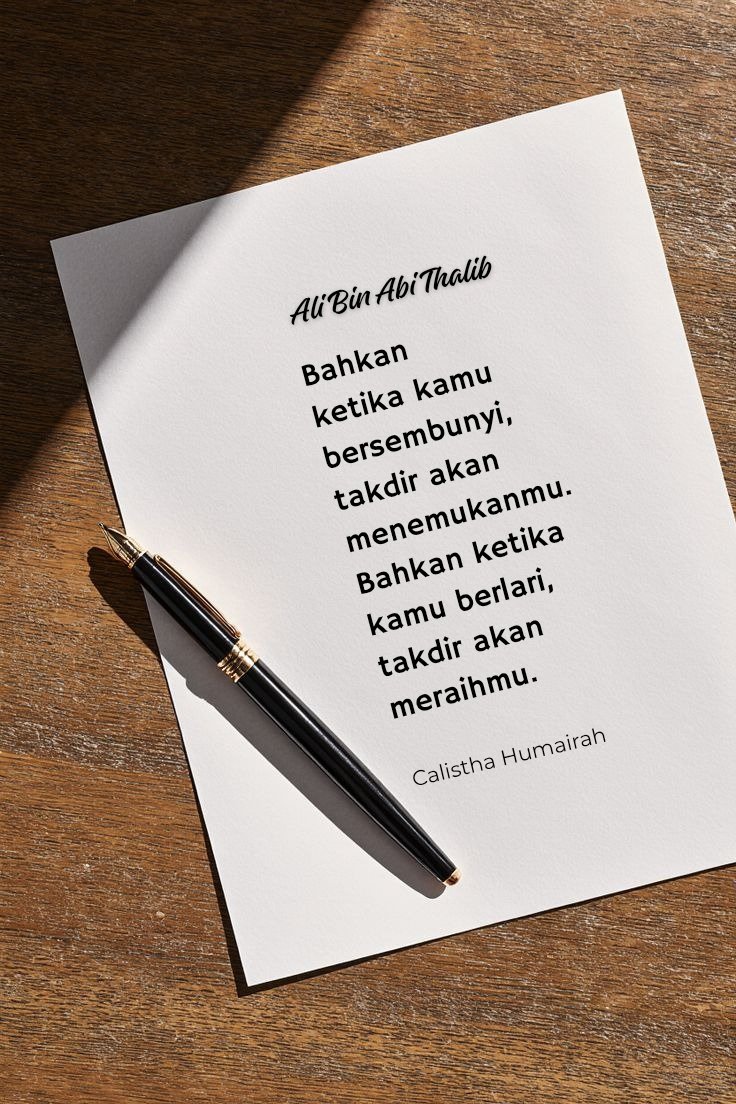 Ali Bin Abi Thalib
Bahkan
ketika kamu
bersembunyi,
takdir akan
menemukanmu.
Bahkan ketika
kamu berlari,
takdir akan
meraihmu.
Calistha Humairah